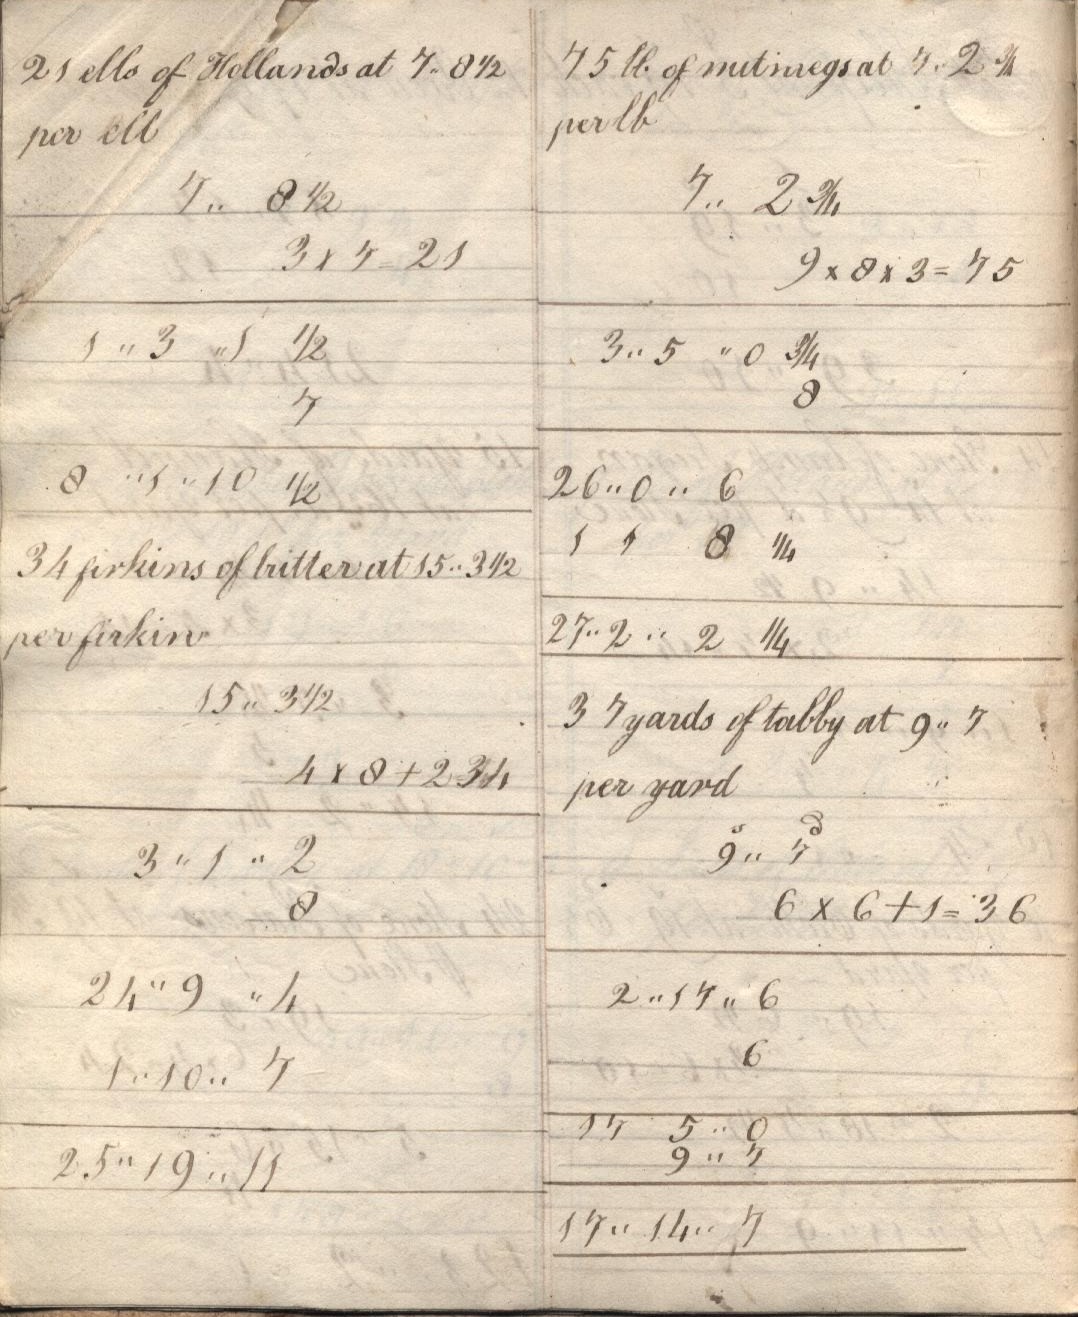 21 ells of Hollands at 7,, 8 1/2
per ell
7,, 8 1/2
3 x 7 = 21
1 ,, 3 ,, 1 1/2
7
8 ,, 1 ,, 10 1/2
34 firkins of butter at 15,, 3 1/2
per firkin
15,, 3 1/2
4 x 8 + 2 34
3 ,, 1 ,, 2
8
24 ,, 9 ,, 4
1 ,, 10 ,, 7
25 ,, 19 ,, 11
75 lb of nutmegs at 7,, 2 3/4
per lb
7,, 2 3/4
9 x 8 x 3 = 75
3 ,, 5 ,, 0 3/4
8
26 ,, 0 ,, 6
1 1 8 1/4
27 ,, 2 ,, 2 1/4
37 yards of tabby at 9,, 7
per yard
s d
9,, 7
6 x 6 + 1 = 36
2 ,, 17 ,, 6
6
17 5 ,, 0
9 ,, 7
17 ,, 14 ,, 7